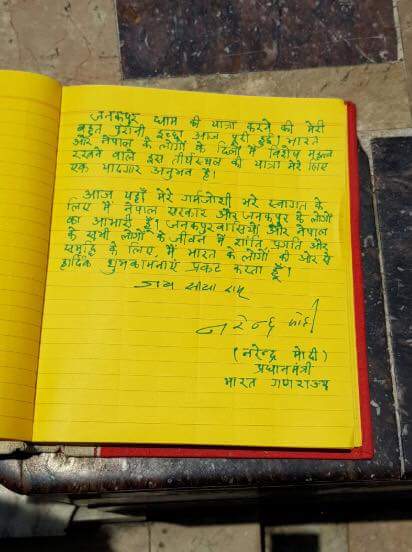 जनकपुर धाम की यात्रा करने की मेरी
बहुत पुरानी इच्छा आज पूरी हुई। भारत
और नेपाल के लोगों के दिलों में विशेष महत्व
रखने वाले इस तीर्थस्थल की यात्रा मेरे लिए
एक यादगार अनुभव है।
आज यहाँ मेरे गर्मजोशी भरे स्वागत के
लिए मैं नेपाल सरकार और जनकपुर के लोगों
का आभारी हूँ। जनकपुरवासियों और नेपाल
के सभी लोगों के जीवन में शांति, प्रगति और
समृद्धि के लिए, मैं भारत के लोगों की ओर से
हार्दिक शुभकामनाएं प्रकट करता हूँ।
जय सीया राम
नरेन्द्र मोदी
(नरेन्द्र मोदी)
प्रधानमंत्री
भारत गणराज्य